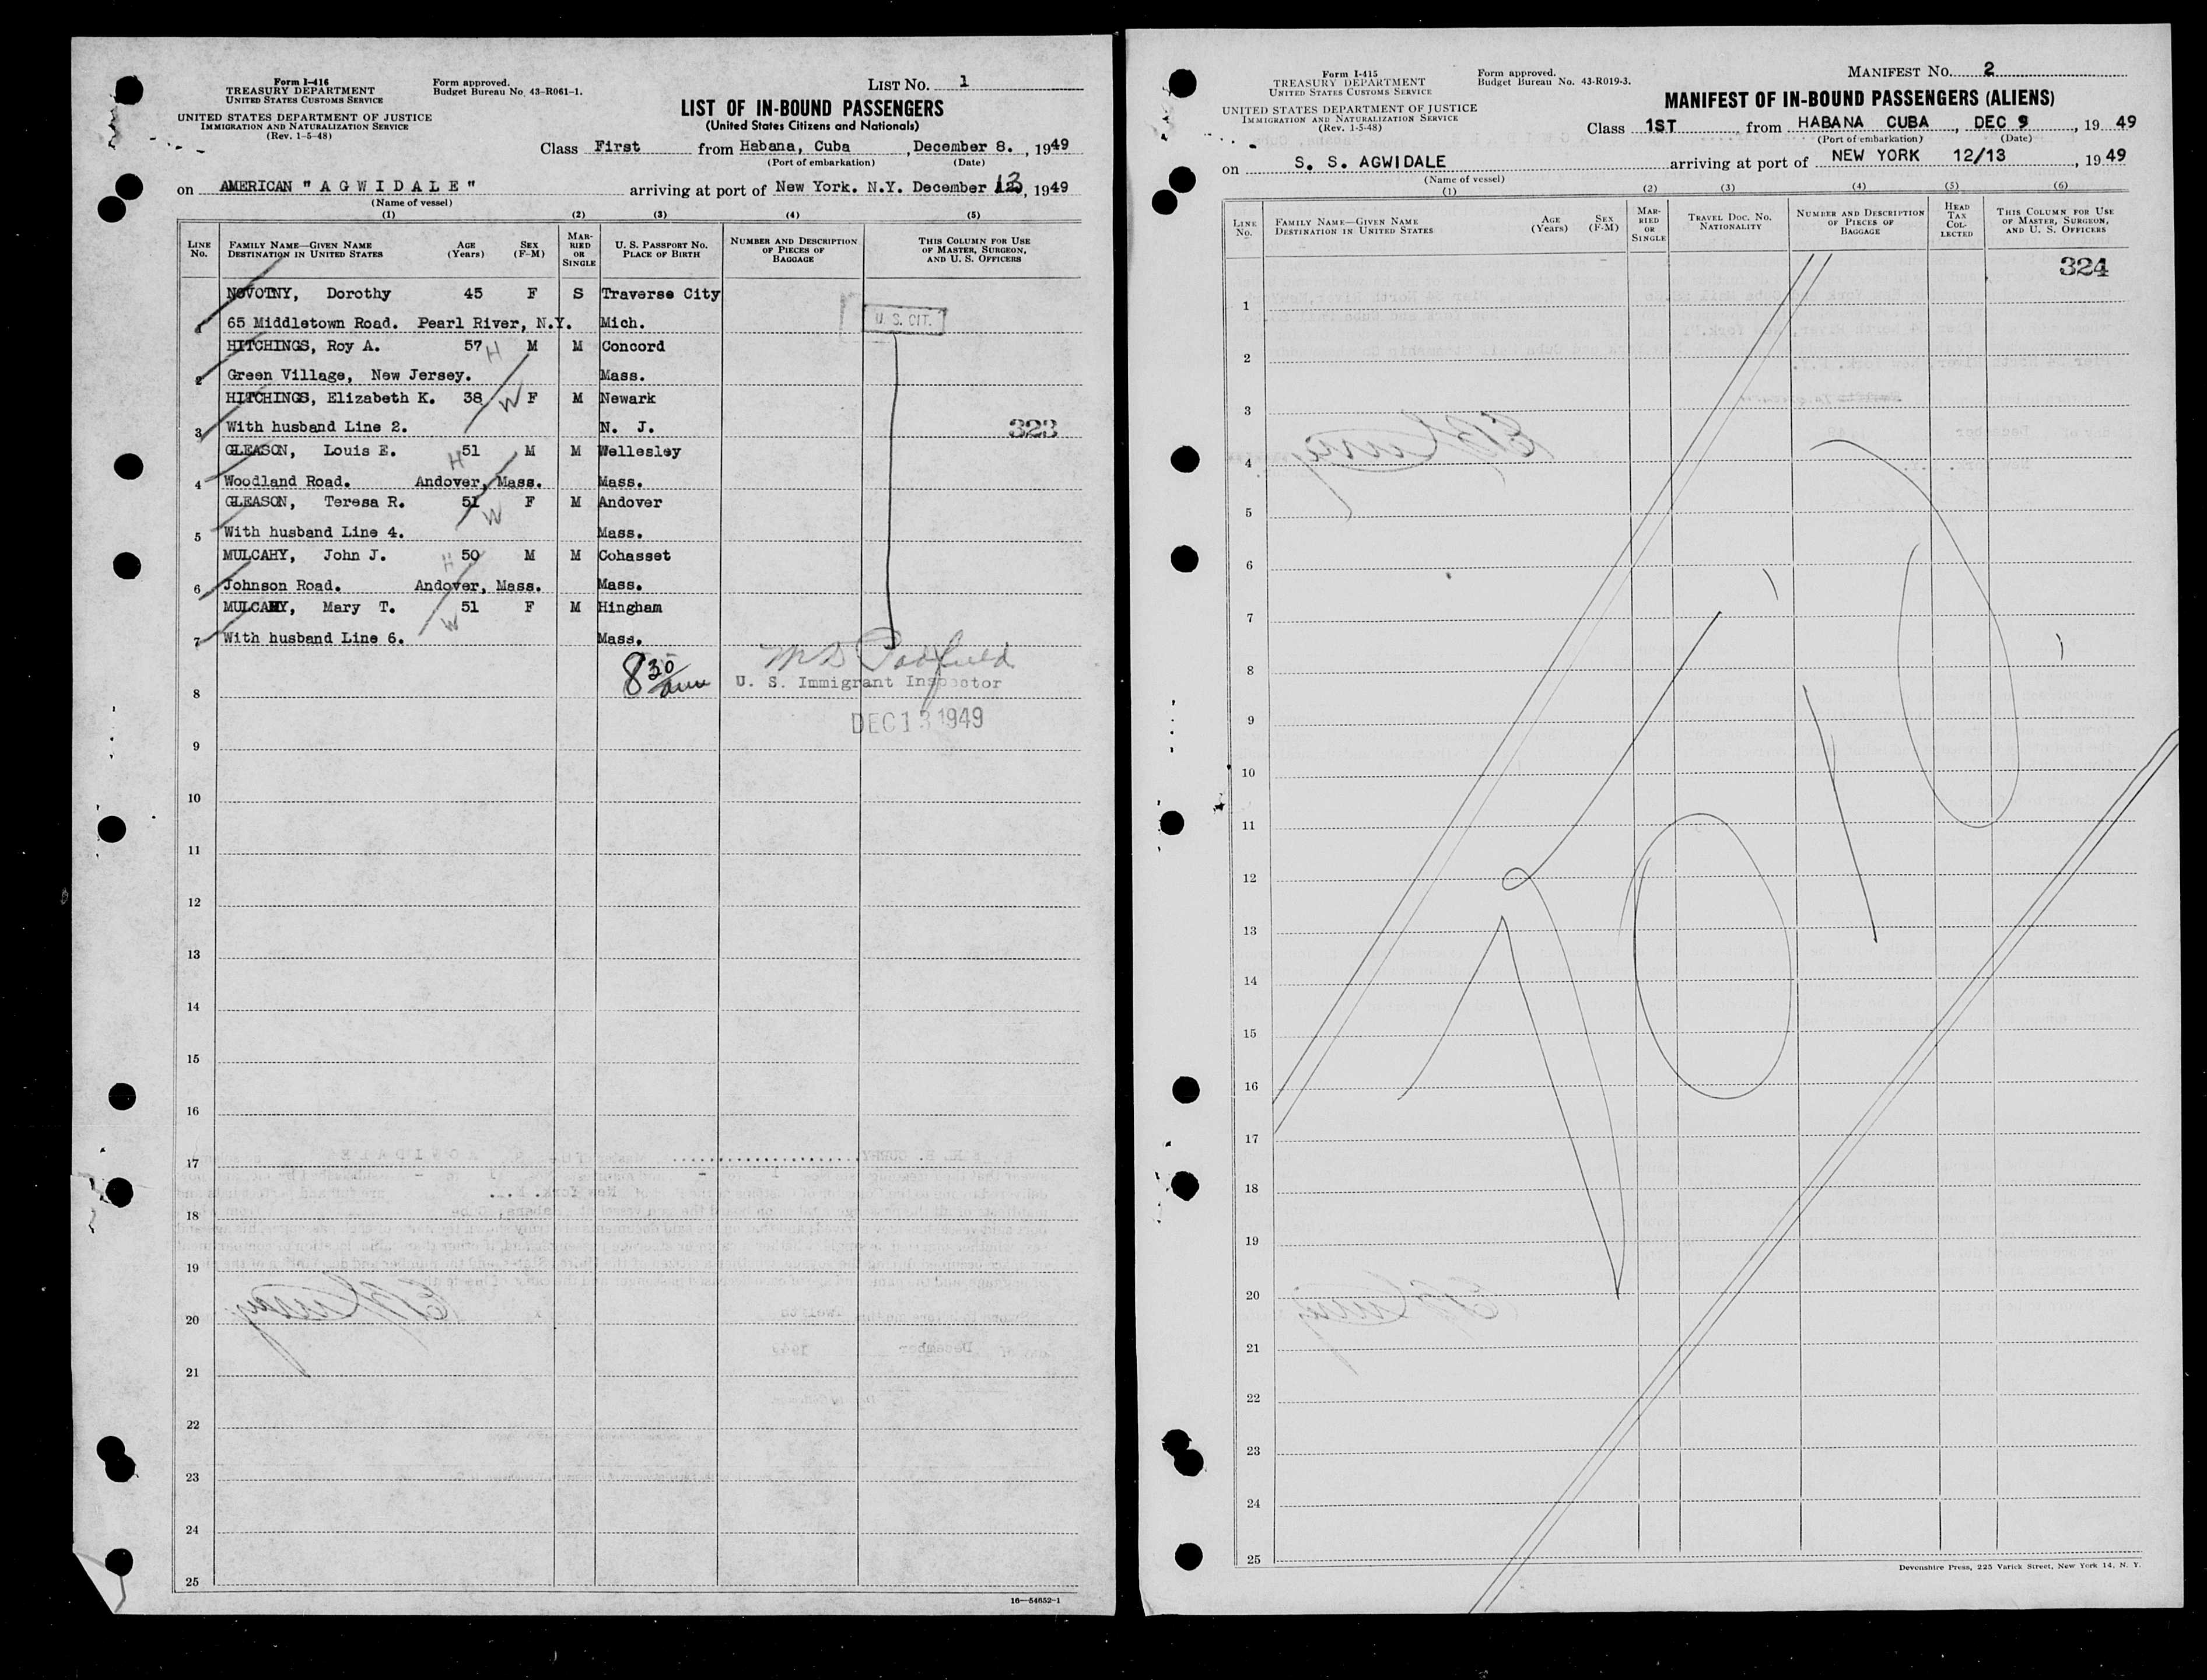 Form I-416
TREASURY DEPARTMENT
UNITED STATES CUSTOMS SERVICE
UNITED STATES DEPARTMENT OF JUSTICE
IMMIGRATION AND NATURALIZATION SERVICE
(Rev. 1-5-48)
Form approved.
Budget Bureau No. 43-R061-1.
LIST No. 1
LIST OF IN-BOUND PASSENGERS
(United States Citizens and Nationals)
Class First from Habana, Cuba, December 8., 1949
(Port of embarkation) (Date)
on AMERICAN "AGWIDALE" arriving at port of New York. N.Y. December 13, 1949
(Name of vessel)
(1) (2) (3) (4) (5)
LINE No. FAMILY NAME—GIVEN NAME DESTINATION IN UNITED STATES AGE (Years) SEX (F-M) MARRIED OR SINGLE U. S. PASSPORT No. PLACE OF BIRTH NUMBER AND DESCRIPTION OF PIECES OF BAGGAGE THIS COLUMN FOR USE OF MASTER, SURGEON, AND U. S. OFFICERS
NOVOTNY, Dorothy 45 F S Traverse City
1 65 Middletown Road. Pearl River, N.Y. Mich. U. S. CIT.
HITCHINGS, Roy A. 57 H M M Concord
2 Green Village, New Jersey. Mass.
HITCHINGS, Elizabeth K. 38 W F M Newark
3 With husband Line 2. N. J. 323
GLEASON, Louis E. H 51 M M Wellesley
4 Woodland Road. Andover, Mass. Mass.
GLEASON, Teresa R. 51 W F M Andover
5 With husband Line 4. Mass.
MULCAHY, John J. H 50 M M Cohasset
6 Johnson Road. Andover, Mass. Mass.
MULCAHY, Mary T. 51 W F M Hingham
7 With husband Line 6. Mass.
8 30 am
U. S. Immigrant Inspector
8
DEC 13 1949
9
10
11
12
13
14
15
16
17
18
19
20
21
22
23
24
25
16—54652-1
Form I-415
TREASURY DEPARTMENT
UNITED STATES CUSTOMS SERVICE
UNITED STATES DEPARTMENT OF JUSTICE
IMMIGRATION AND NATURALIZATION SERVICE
(Rev. 1-5-48)
Form approved.
Budget Bureau No. 43-R019-3.
MANIFEST No. 2
MANIFEST OF IN-BOUND PASSENGERS (ALIENS)
Class 1ST from HABANA CUBA, DEC 9, 1949
(Port of embarkation) (Date)
on S. S. AGWIDALE arriving at port of NEW YORK 12/13, 1949
(Name of vessel)
(1) (2) (3) (4) (5) (6)
LINE No. FAMILY NAME—GIVEN NAME DESTINATION IN UNITED STATES AGE (Years) SEX (F-M) MARRIED OR SINGLE TRAVEL DOC. No. NATIONALITY NUMBER AND DESCRIPTION OF PIECES OF BAGGAGE HEAD TAX COLLECTED THIS COLUMN FOR USE OF MASTER, SURGEON, AND U. S. OFFICERS
324
1
2
3
4
5
6
7
8
9
10
11
12
13
14
15
16
17
18
19
20
21
22
23
24
25
Devonshire Press, 225 Varick Street, New York 14, N. Y.